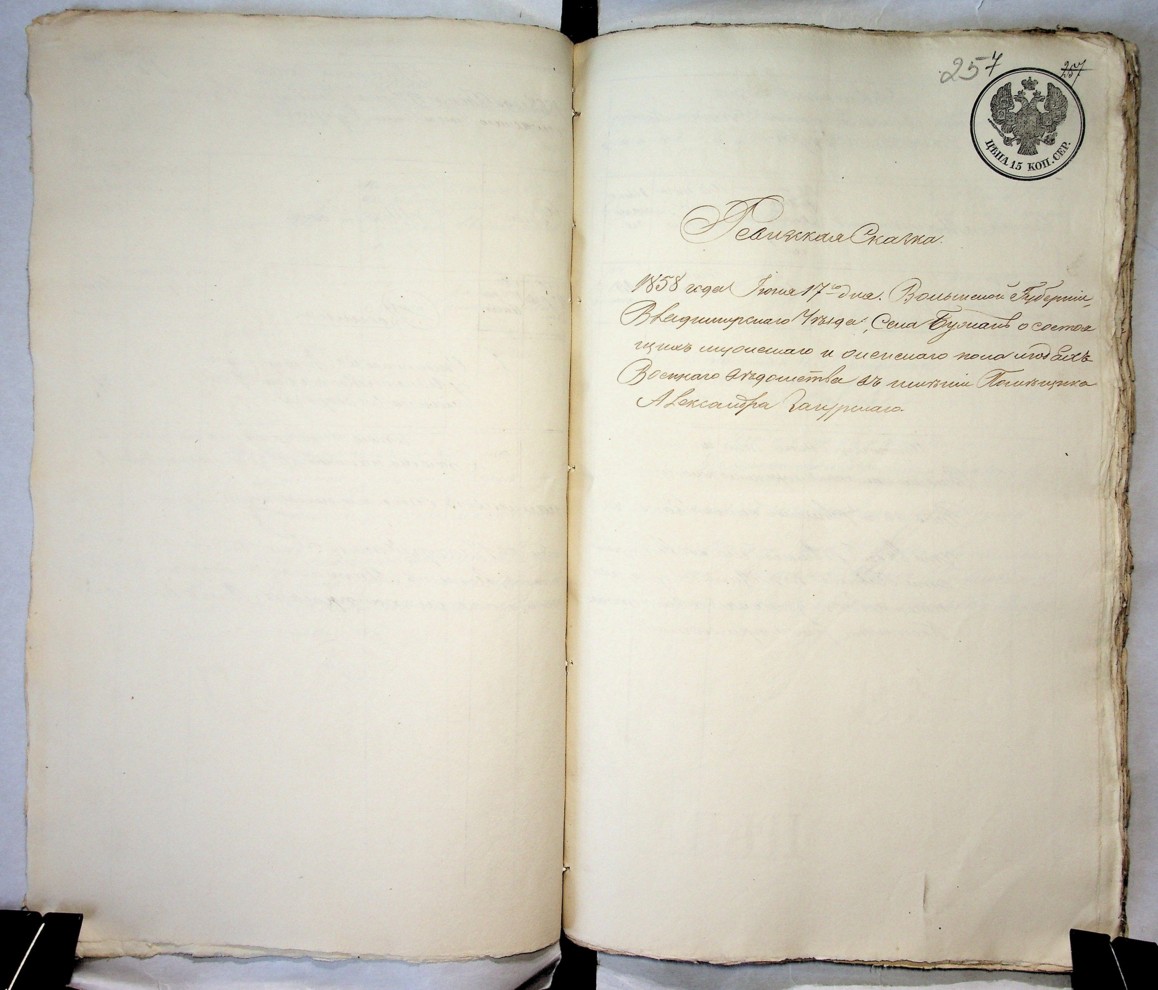 257 257
ЦѢНА 15 КОП. СЕР.
Ревизская Сказка.
1858 года Іюня 17го дня. Волынской Губерніи,
Владимирскаго Уѣзда, Села о состоя
щихъ мужескаго и женскаго пола людяхъ
Военнаго вѣдомства въ имѣніи Помѣщика
Александра